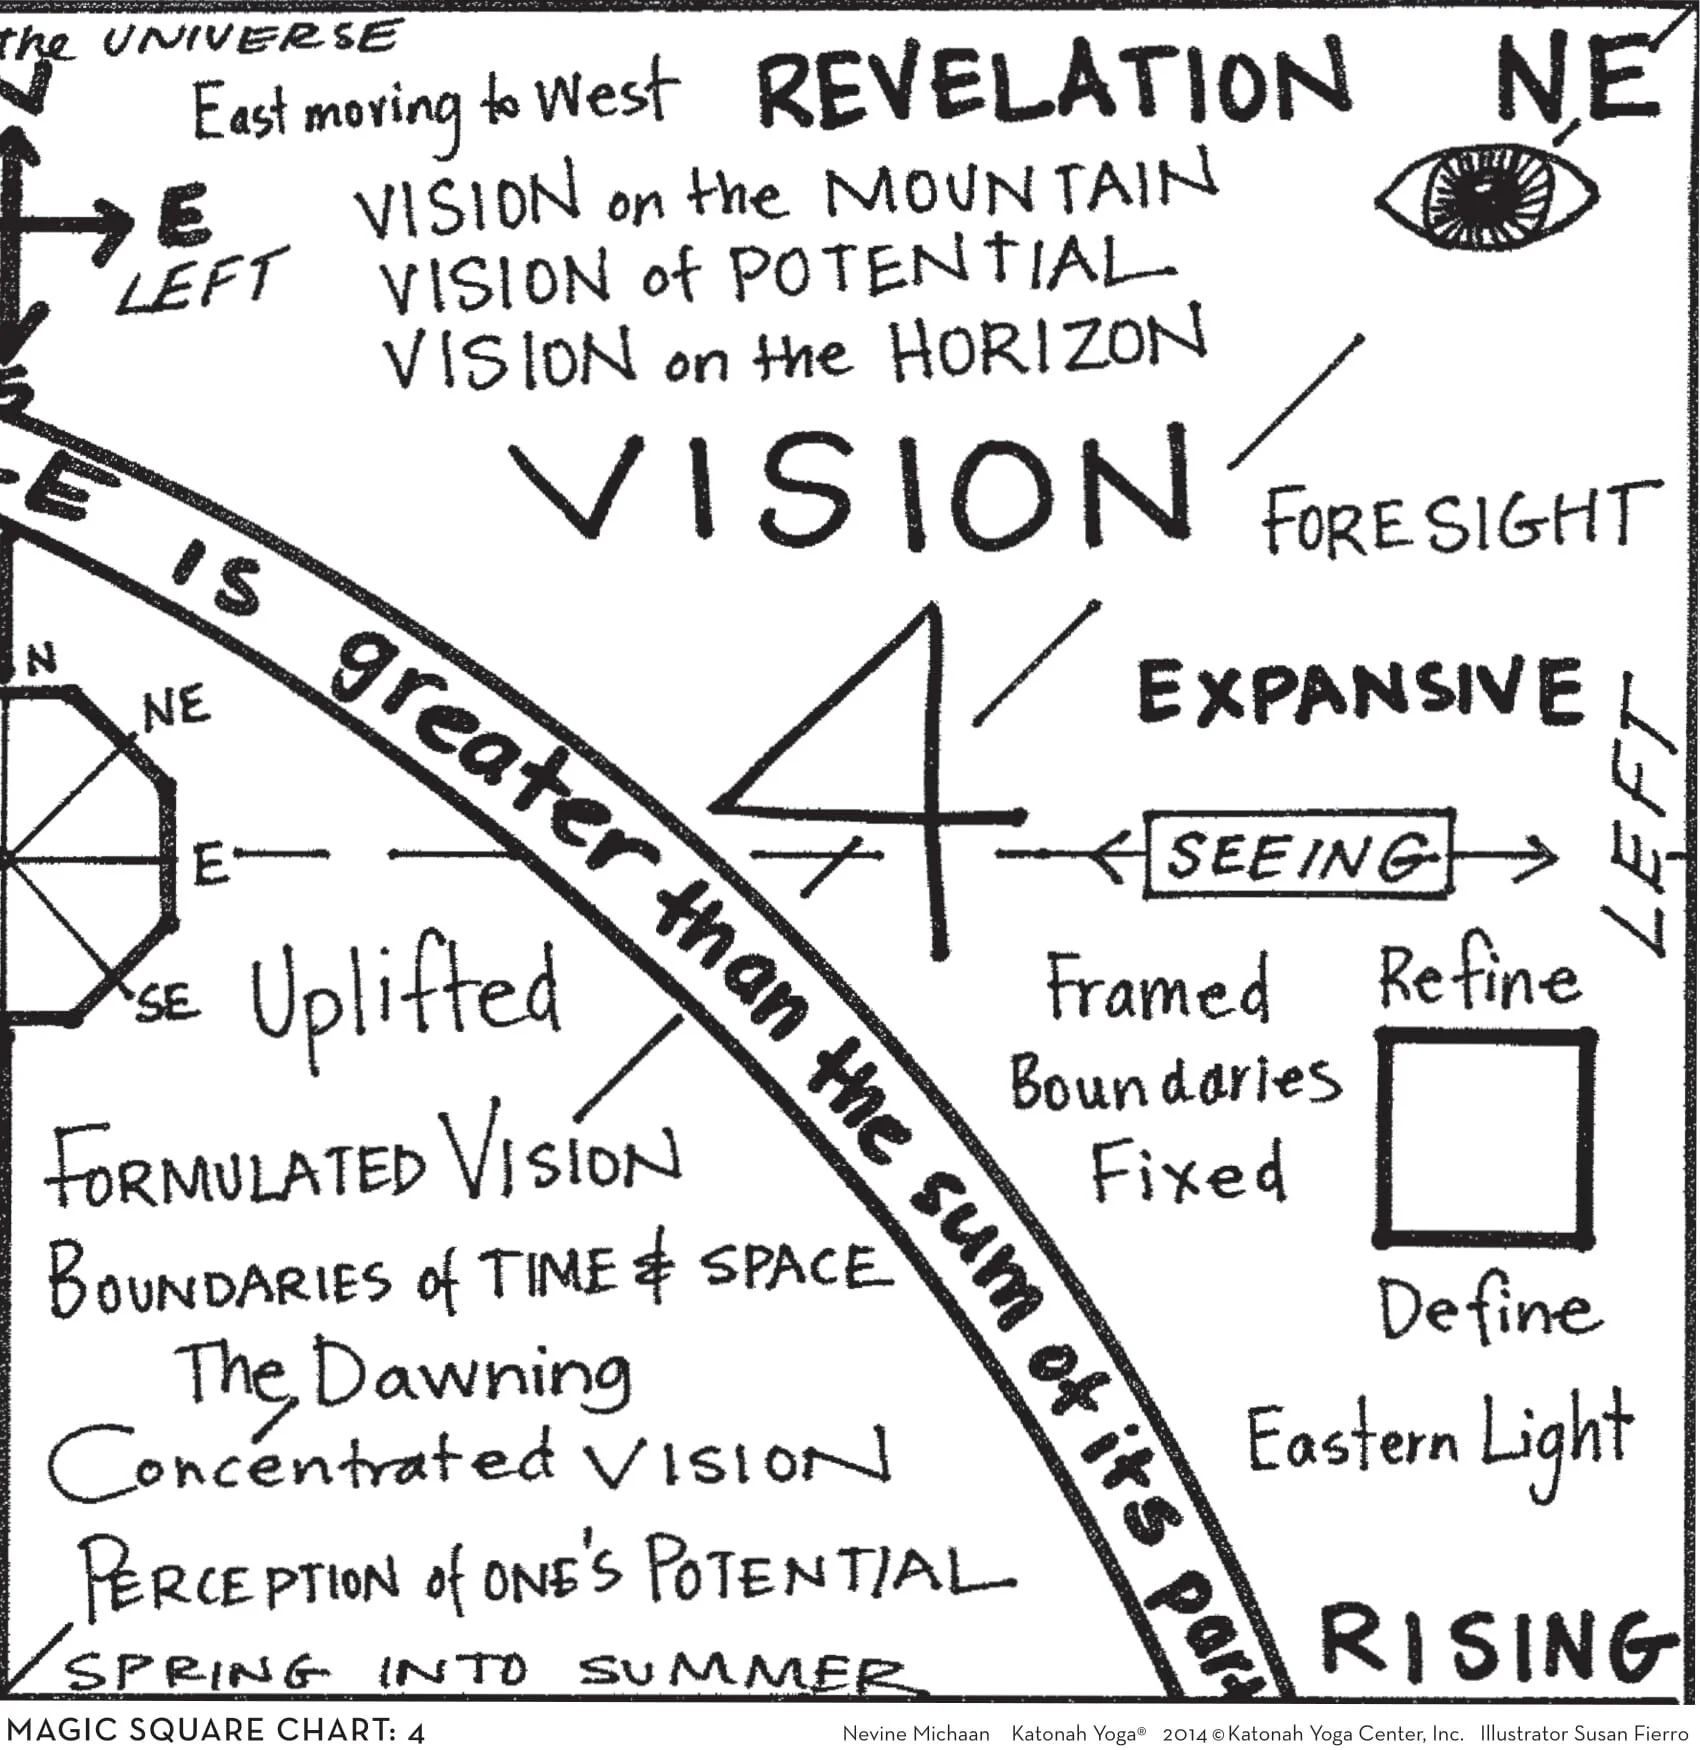 the UNIVERSE
East moving to West
REVELATION
NE
E
LEFT
S
VISION on the MOUNTAIN
VISION of POTENTIAL
VISION on the HORIZON
VISION
FORESIGHT
E IS greater than the sum of its part
4
EXPANSIVE
LEFT
SEEING
N
NE
E
SE
Uplifted
Framed
Boundaries
Fixed
Refine
Define
FORMULATED VISION
BOUNDARIES of TIME & SPACE
The Dawning
Concentrated VISION
PERCEPTION of ONE'S POTENTIAL
SPRING INTO SUMMER
Eastern Light
RISING
MAGIC SQUARE CHART: 4
Nevine Michaan Katonah Yoga® 2014 © Katonah Yoga Center, Inc. Illustrator Susan Fierro